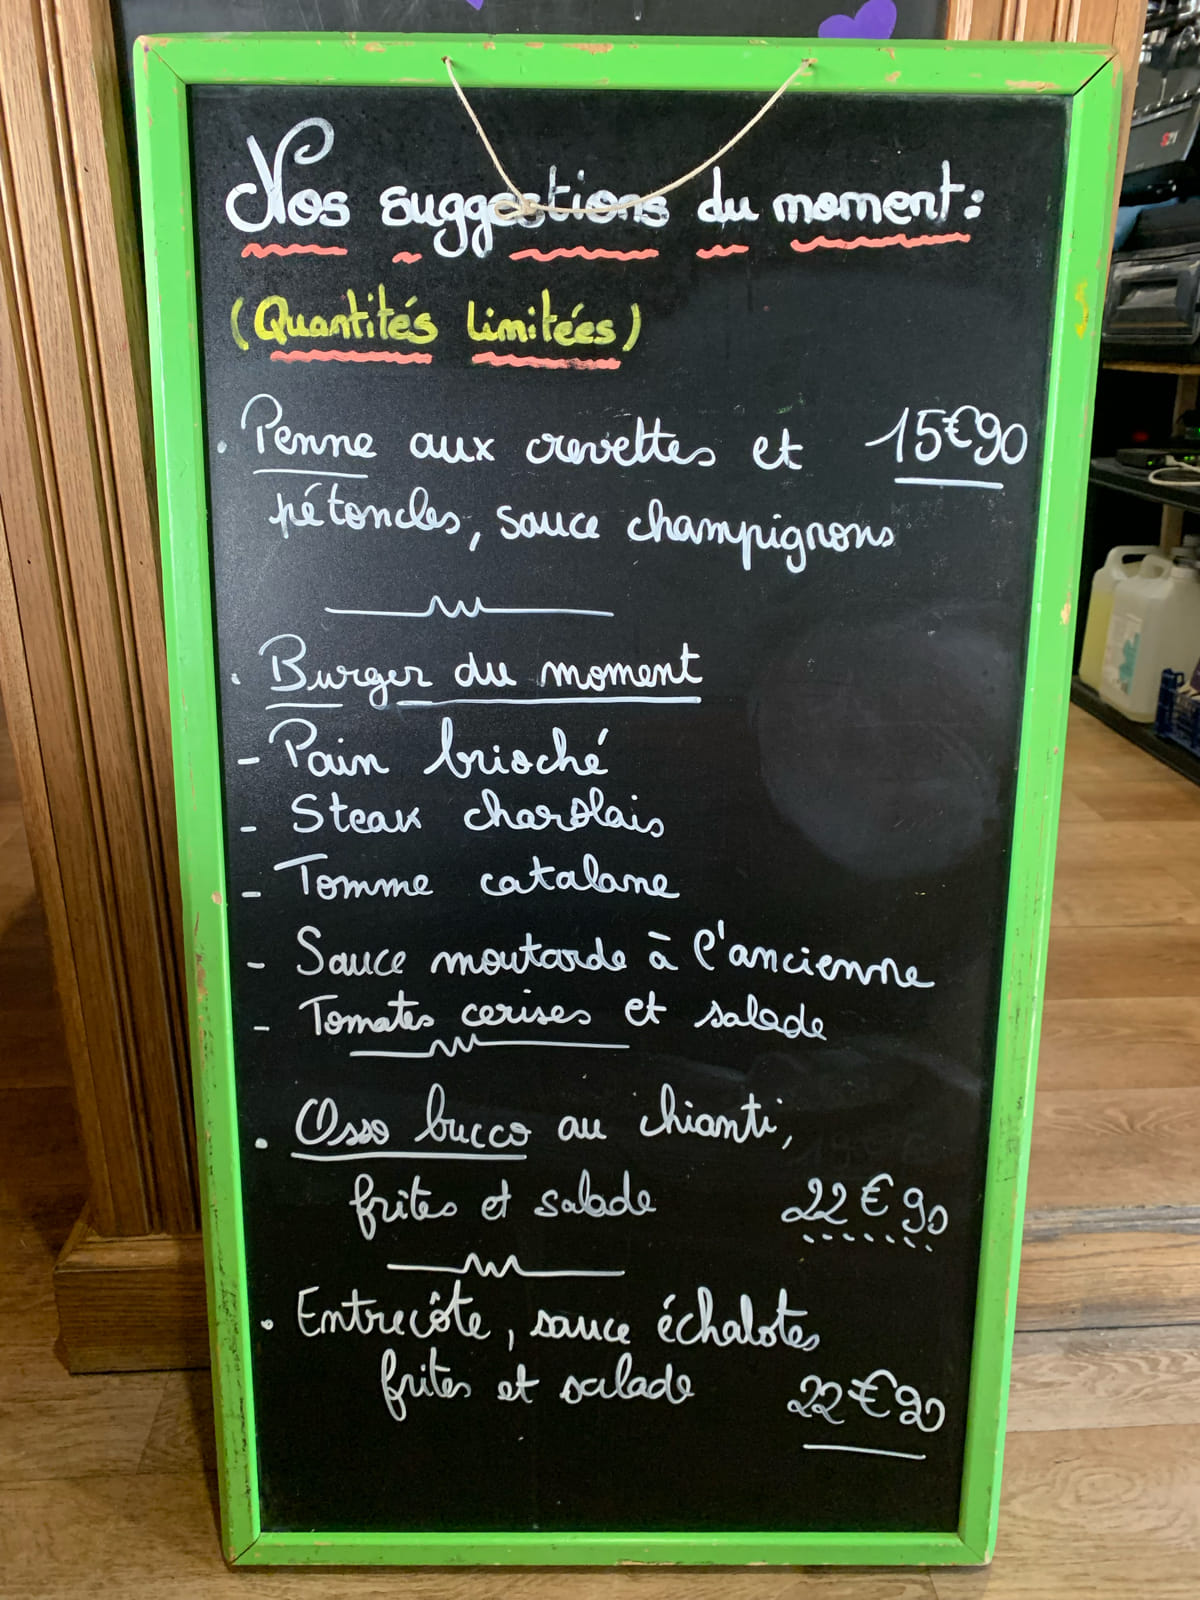 Nos suggestions du moment:
(Quantités Limitées)
. Penne aux crevettes et 15€90
pétoncles, sauce champignons
. Burger du moment
- Pain brioché
- Steak charolais
- Tomme catalane
- Sauce moutarde à l'ancienne
- Tomates cerises et salade
. Osso bucco au chianti,
frites et salade 22€90
. Entrecôte, sauce échalotes
frites et salade 22€90